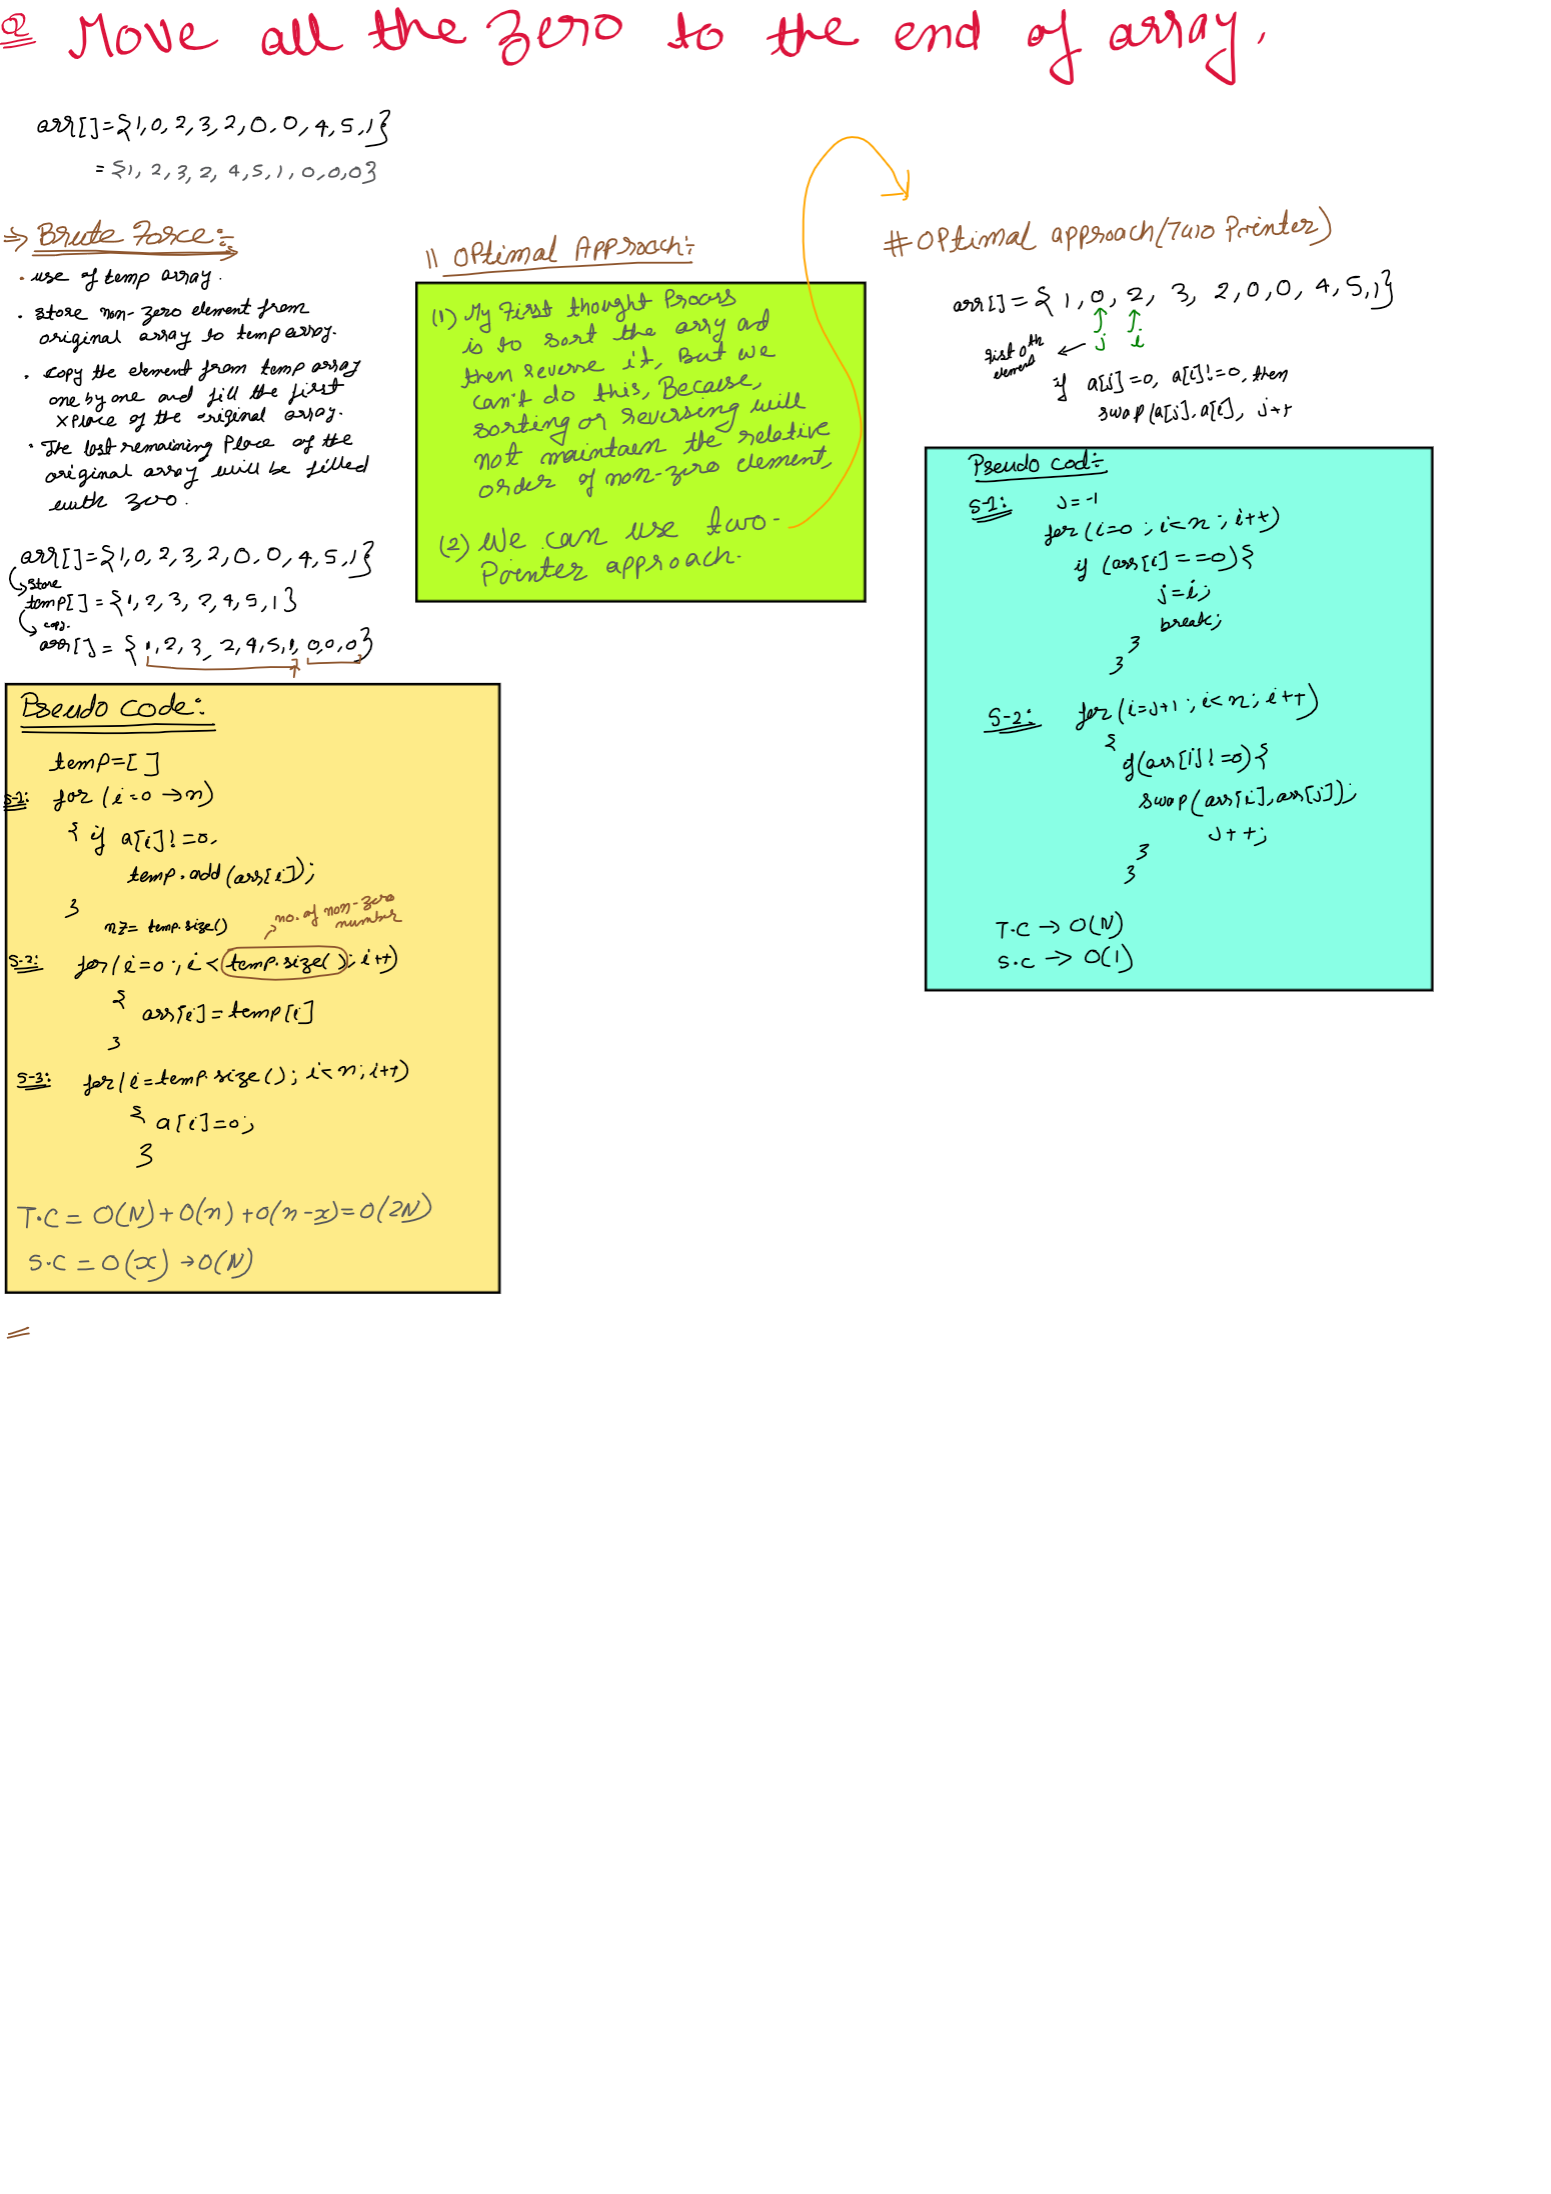 Q Move all the zero to the end of array.
arr[]={1,0,2,3,2,0,0,4,5,1}
={1,2,3,2,4,5,1,0,0,0}
⇒ Brute Force:-
· use of temp array.
· store non-zero element from
original array to temp array.
· copy the element from temp array
one by one and fill the first
x place of the original array.
· The last remaining place of the
original array will be filled
with zero.
arr[]={1,0,2,3,2,0,0,4,5,1}
store
temp[]={1,2,3,2,4,5,1}
copy.
arr[]={1,2,3,2,4,5,1,0,0,0}
Pseudo code:-
temp=[]
S-1: for (i=0→n)
{ if a[i]!=0.
temp.add(arr[i]);
}
nz= temp.size()
no. of non-zero
number
S-2: for(i=0;i<temp.size();i++)
{
arr[i]=temp[i]
}
S-3: for(i=temp.size(); i<n;i++)
{ a[i]=0;
}
T.C = O(N)+O(n)+O(n-x)=O(2N)
S.C = O(x)→O(N)
=
|| Optimal Approach:-
(1) My First thought Process
is to sort the arry ad
then reverse it, But we
can't do this, Because,
sorting or reversing will
not maintaen the relative
order of non-zero element,
(2) We can use two-
Pointer approach.
# Optimal approach(Two Pointer)
arr[]={1,0,2,3,2,0,0,4,5,1}
j i
first 0th
element
if a[j]=0, a[i]!=0, then
swap(a[j].a[i], j++
Pseudo cod:-
S-1: j=-1
for(i=0;i<n;i++)
if (arr[i]==0){
j=i;
break;
}
}
S-2: for(i=j+1;i<n;i++)
{
if(arr[i]!=0){
swap(arr[i],arr[j]);
j++;
}
}
T.C → O(N)
S.C → O(1)